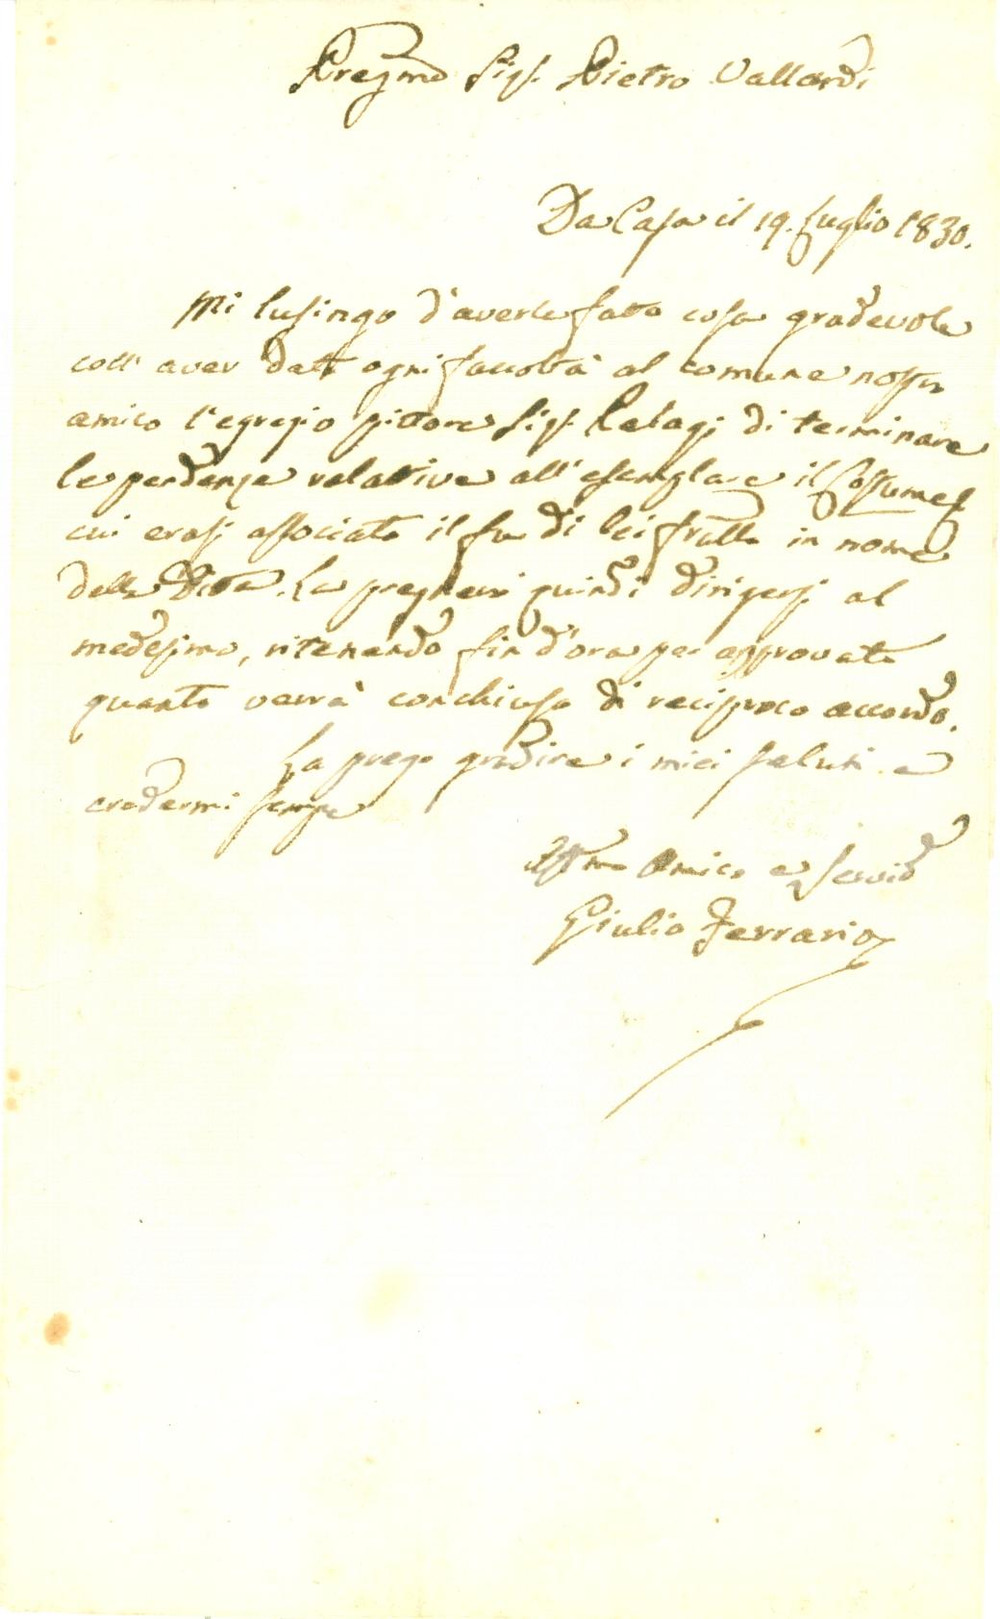 Pregmo Sigr. Pietro Vallardi
Da Casa il 19. Luglio 1830.
Mi lusingo d'averle fatto cosa gradevole
coll' aver dato ogni facoltà al comune nostro
amico l'egregio pittore Sigr. Pelagj di terminare
le pendenze relative all' esemplare il Costume
cui erasi associato il fu di lei fratello in nome
della Ditta. La pregherei quindi dirigersi al
medesimo, ritenendo fin d'ora per approvato
quanto verrà conchiuso di reciproco accordo.
La prego gradire i miei saluti e
credermi sempre
Affmo Amico e Servid
Giulio Ferrario